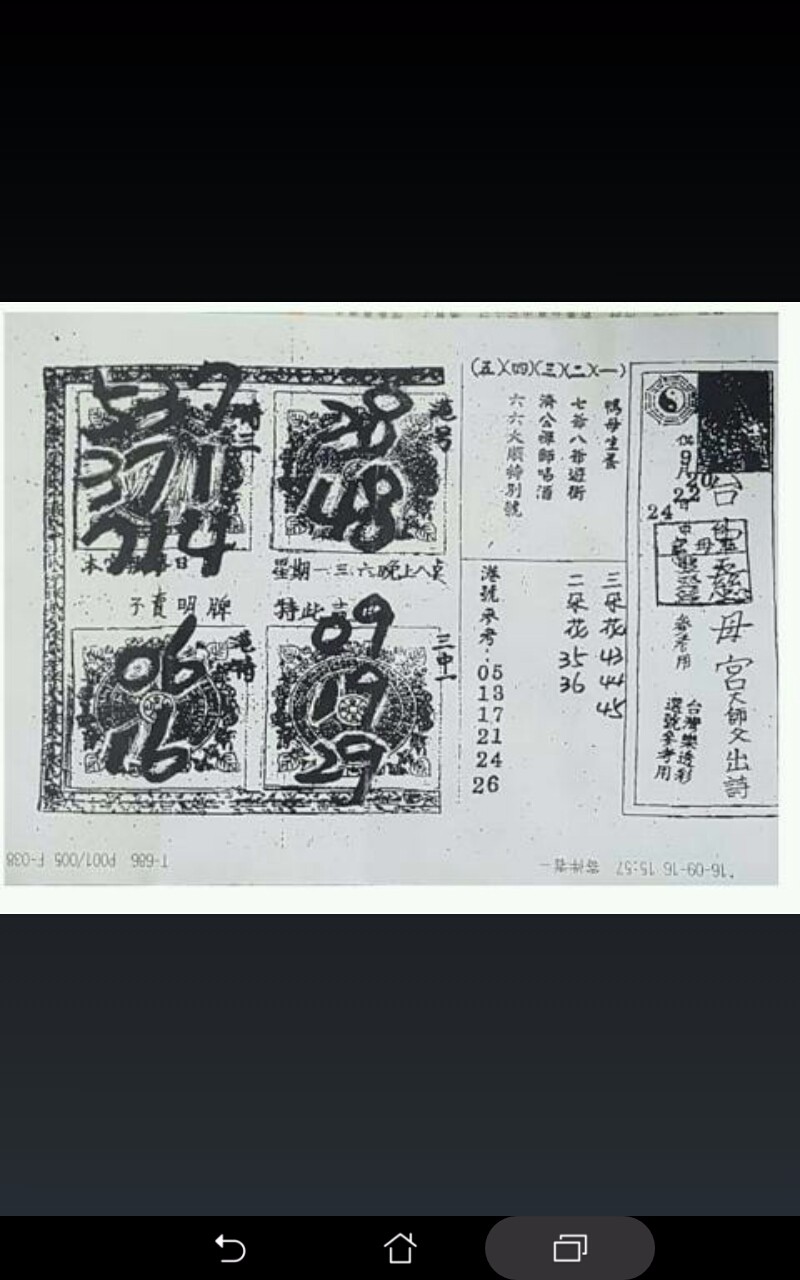 台
慈
母
宮
天師父出詩
9月
20
22
24
參考用
台灣樂透彩
選號參考用
(五)(四)(三)(二)(一)
鴨母生蛋
七爺八爺遊街
濟公禪師唱酒
六六大順特別號
三朵花
43
44
45
二朵花
35
36
港號參考:
05
13
17
21
24
26
港号
28
48
特三
537
371
714
星期一.三.六晚上八點
子賣明牌
三中一
09
19
29
港特
06
16
'16-09-16 15:57
T-686 P001/005 F-038